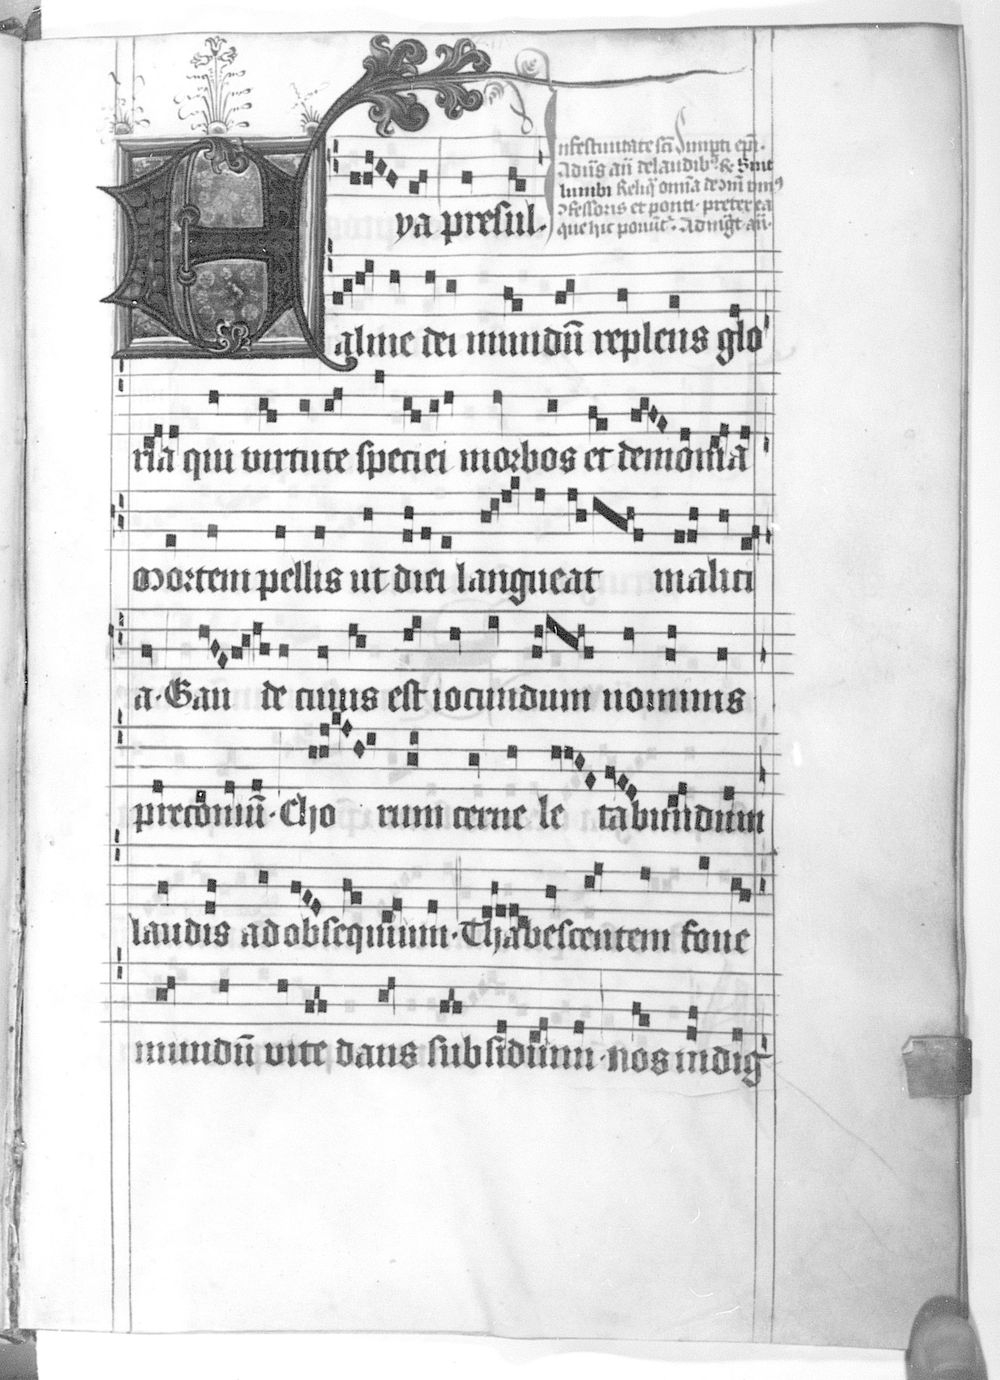 In festivitate sc̄i Sumpti ep̄i.
Ad vūs an̄ de laudib⁹. & Sint
lumbi Reliq̄ om̄ia de om̄i
ꝯfessoris et ponti. preter ea
que hic ponūt᷑. Ad mig̅t an̄.
E ya presul.
alme dei mundū replens glo
ria qui virtute speciei morbos et demonia
Mortem pellis ut diei langueat maliti
a. Gau de cuius est iocundum nominis
preconiū. Cho rum cerne le tabundum
laudis ad obsequium. Thabescentem foue
mundū vite dans subsidium. nos indig̅